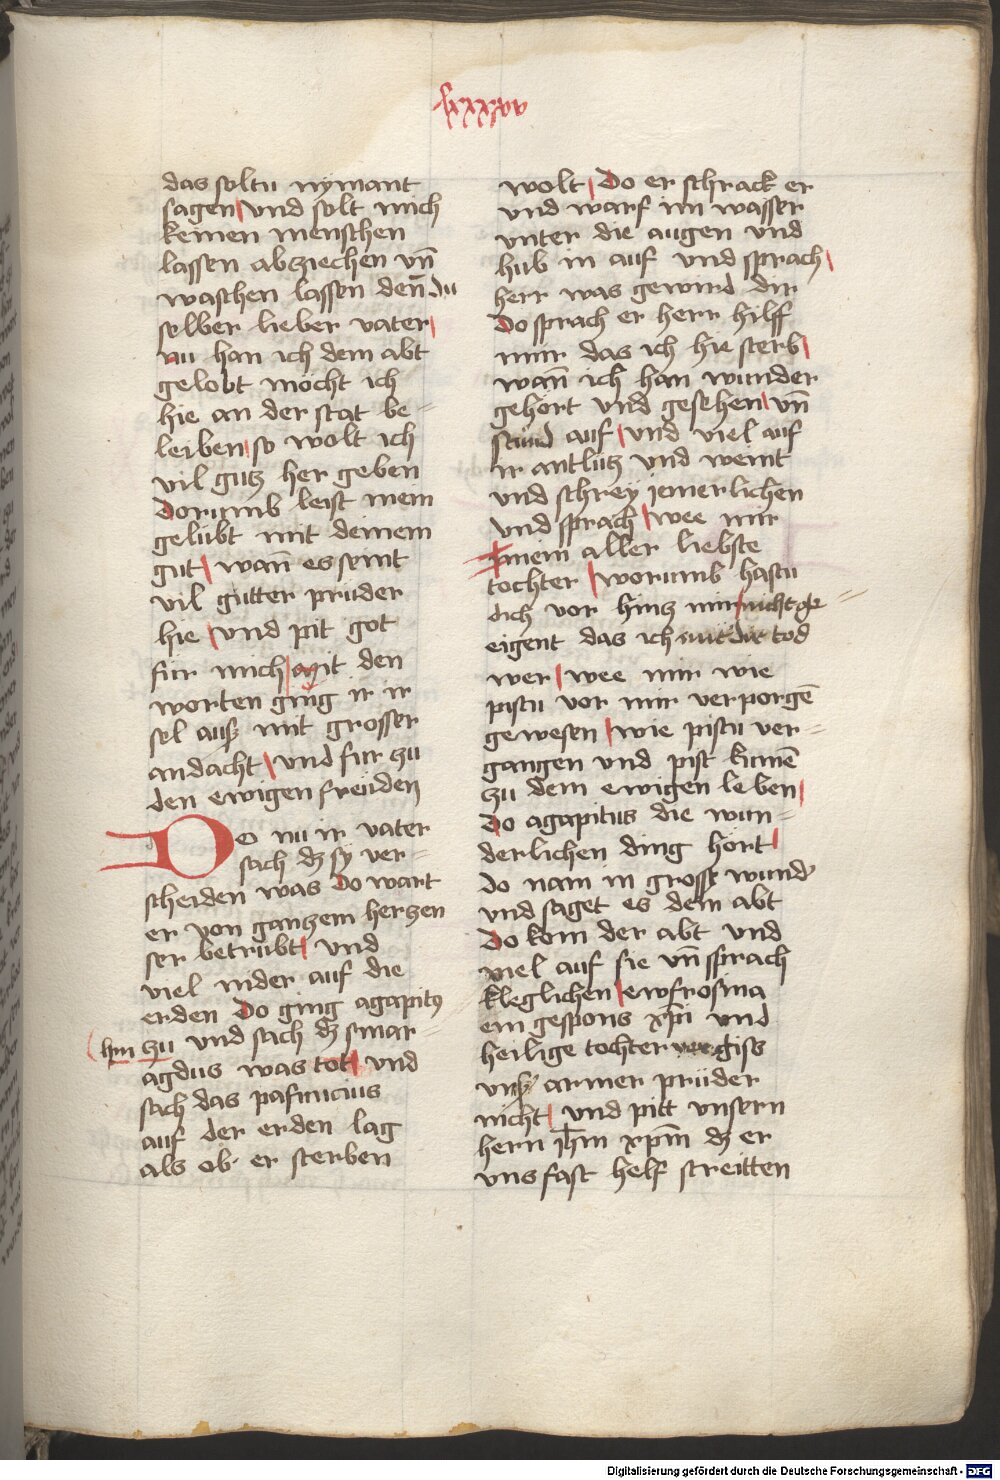 lxxxxvv
das soltu nymant
sagen und solt mich
keinen menschen
lassen abziechen vn̄
waschen lassen den̄ du
selber lieber vater
nu han ich dem abt
gelobt möcht ich
hie an der stat be=
leiben so wolt ich
vil gutz her geben
Dorumb leist mein
gelübt mit deinem
gut wan̄ es seint
vil gutter prüder
hie und pit got
für mich Mit den
worten ging ir ir
sel auß mit grosser
andacht und für zu
den ewigen freüden
Do nu ir vater
sach dz sy ver=
scheiden was Do wart
er von ganzem herzen
ser betrübt und
viel nider auf die
erden Do ging agapitus
hin zu und sach dz smar=
agdus was tot und
sach das pafnucius
auf der erden lag
als ob er sterben
wolt Do er schrack er
und warf im wasser
unter die augen und
hub in auf und sprach
herr was gewird dir
Do sprach er herr hilff
mir das ich hie sterb
wan̄ ich han wunder
gehört und gesehen vn̄
stund auf und viel auf
ir antlutz und weint
und schrey jemerlichen
und sprach wee mir
mein aller liebste
tochter worumb hastu
dich vor hintz mir nicht ge=
eigent das ich mit dir tod
wer wee mir wie
pistu vor mir verporgē
gewesen wie pistu ver=
gangen und pist kumē
zu dem ewigen leben
Do agapitus die wun=
derlichen ding hört
Do nam in grosse wund
und saget es dem abt
Do kom der abt und
viel auf sie vn̄ sprach
kleglichen ewfrosina
ein gespons xp̄i und
heilige tochter vergiss
unser armer prüder
nicht und pitt unsern
hern jhm xp̄m dz er
uns fast helf streitten
Digitalisierung gefördert durch die Deutsche Forschungsgemeinschaft - DFG